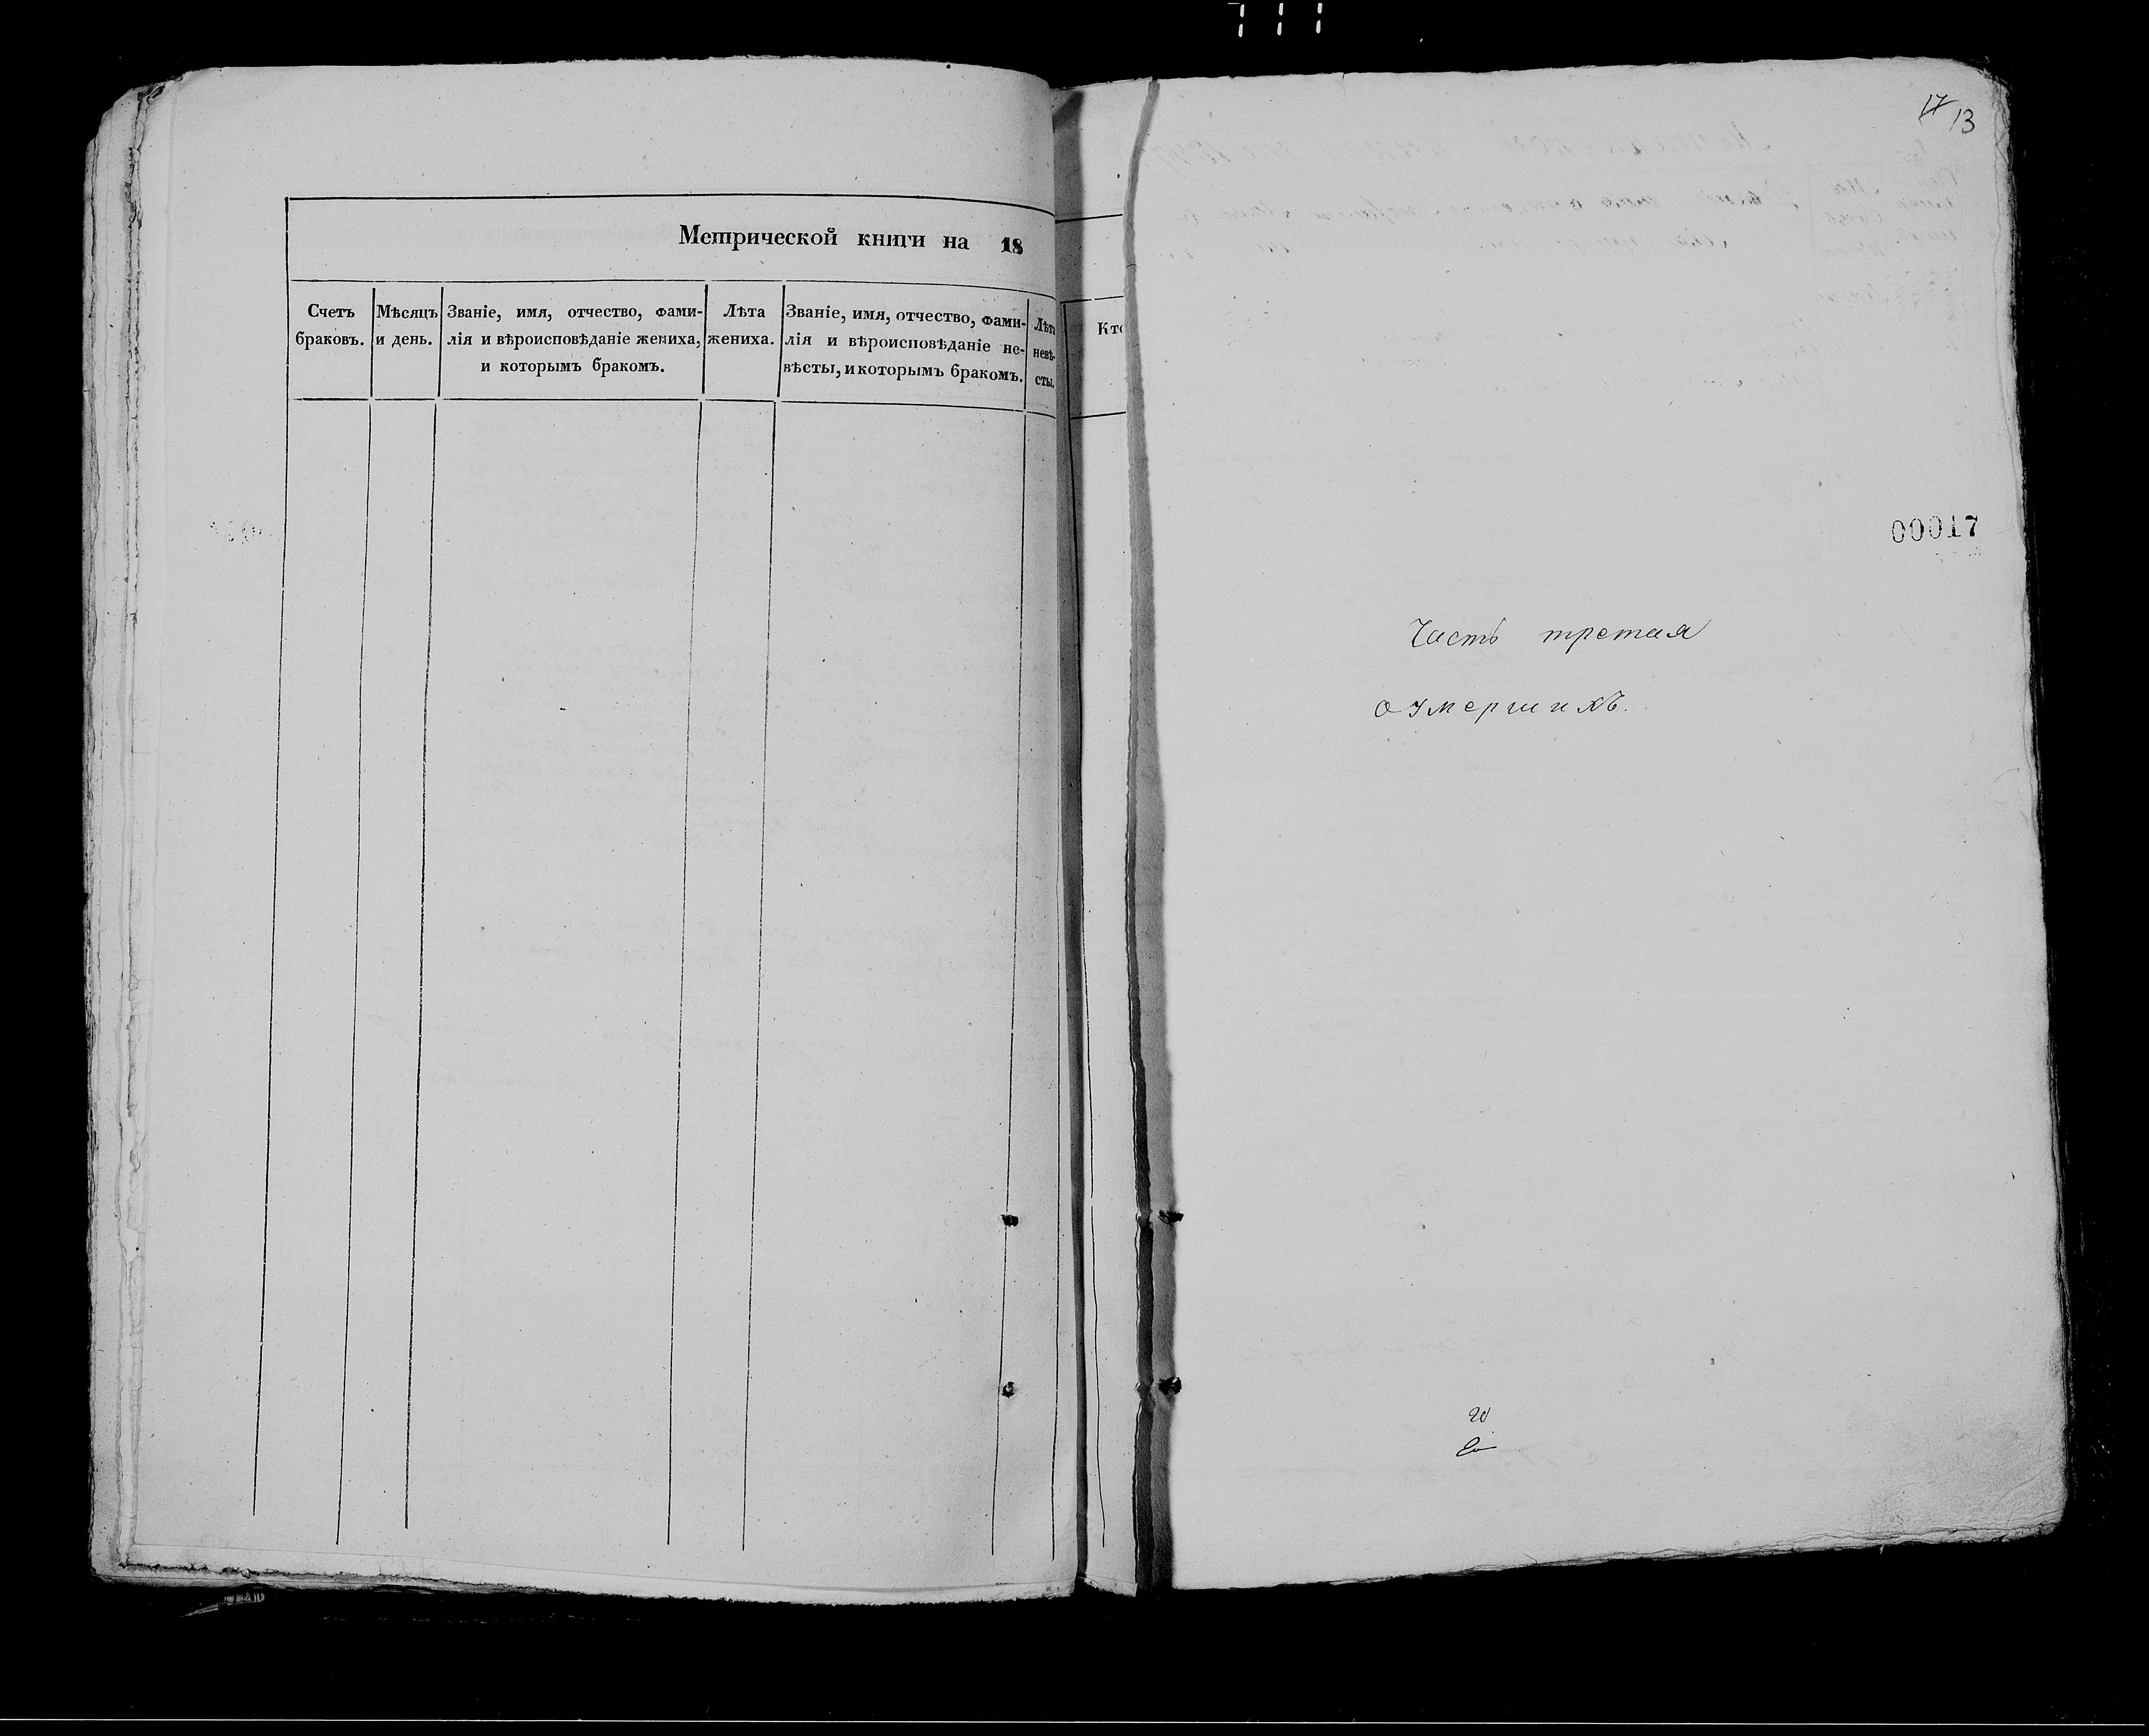 Метрической книги на 18
Счетъ браковъ.
Мѣсяцъ и день.
Званіе, имя, отчество, фами-
лія и вѣроисповѣданіе жениха,
и которымъ бракомъ.
Лѣта
жениха.
Званіе, имя, отчество, фами-
лія и вѣроисповѣданіе не-
вѣсты, и которымъ бракомъ.
Лѣта
невѣ-
сты.
Кто
17 13
00017
Часть третая
о умершихъ.